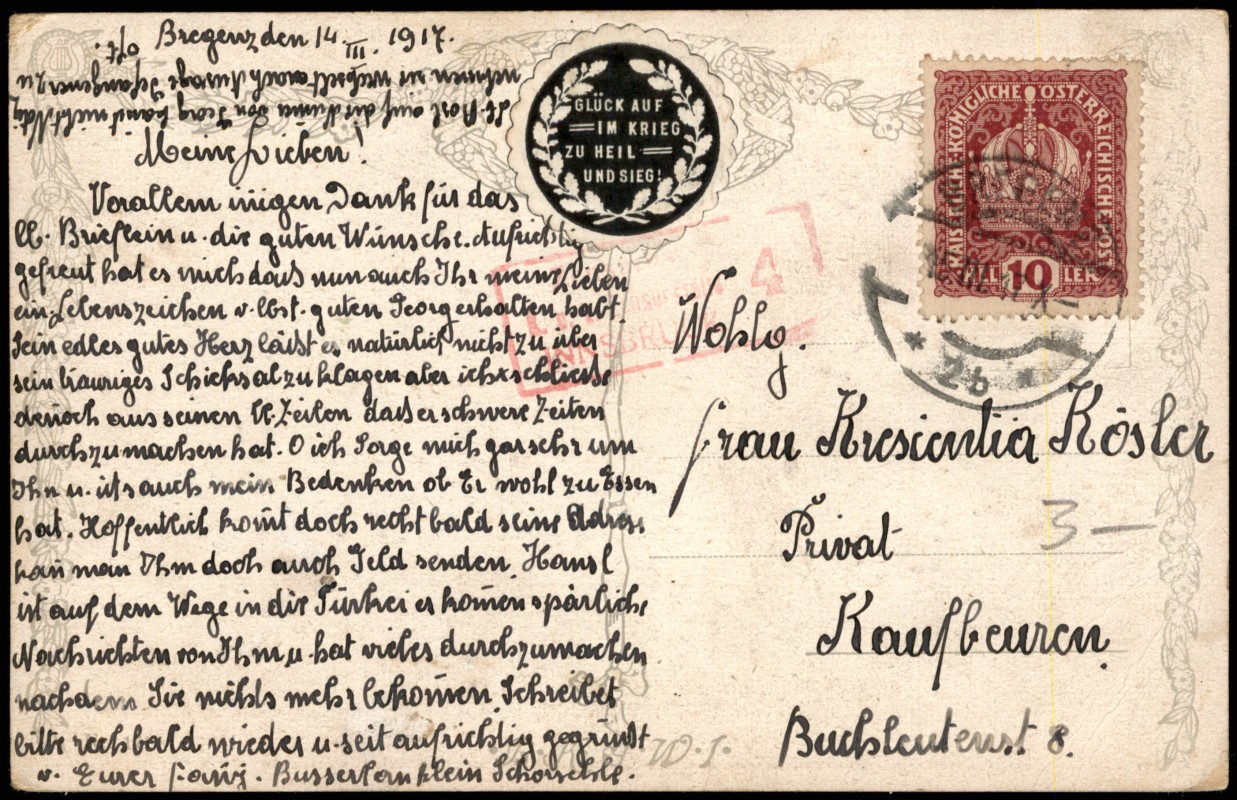 Bregenz den 14. III. 1917.
Meine Lieben!
Vorallem inigen Dank für das
lb. Brieflein u. die guten Wünsche. Aufrichtig
gefreut hat es mich daß nun auch Ihr meine Lieben
ein Lebenszeichen v. lbst. guten Georg erhalten habt.
Sein edles gutes Herz läßt es natürlich nicht zu über
sein trauriges Schicksal zu klagen aber ich schliesse
denoch aus seinen lb. Zeilen daß er schwere Zeiten
durchzumachen hat. O ich Sorge mich gar sehr um
Ihn u. ists auch mein Bedenken ob Er wohl zu Essen
hat. Hoffentlich komt doch recht bald seine Adresse
kan man Ihm doch auch Geld senden. Hansl
ist auf dem Wege in die Türkei es komen spärliche
Nachrichten von Ihm u. hat vieles durchzumachen
nachdem Sie nichts mehr bekomen. Schreibet
bitte rechbald wieder u. seit aufrichtig gegrüßt
v. Eurer Fany. Busserl an klein Schorschl.
GLÜCK AUF
IM KRIEG
ZU HEIL
UND SIEG!
KAISERLICHE KÖNIGLICHE ÖSTERREICHISCHE POST
HELLER 10 HELLER
2b
4
INNSBRUCK
Wohlg.
Frau Kresientia Kösler
Privat
3—
Kaufbeuren
Buchleutenst 8.